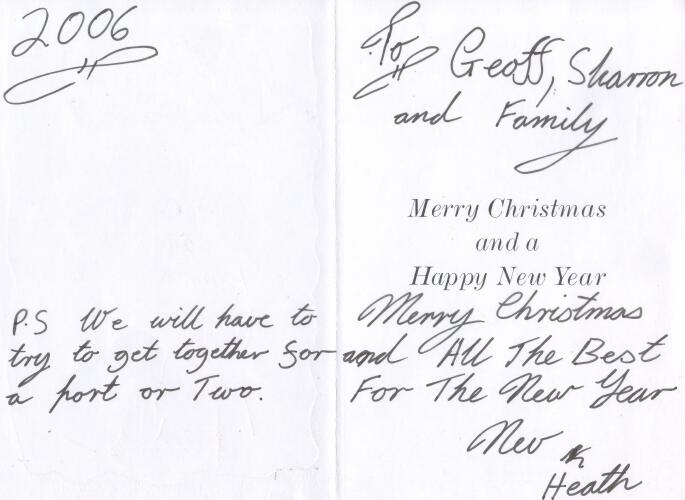 2006
P.S We will have to
try to get together for
a port or Two.
To Geoff, Sharron
and Family
Merry Christmas
and a
Happy New Year
Merry Christmas
and All The Best
For The New Year
Nev
Heath